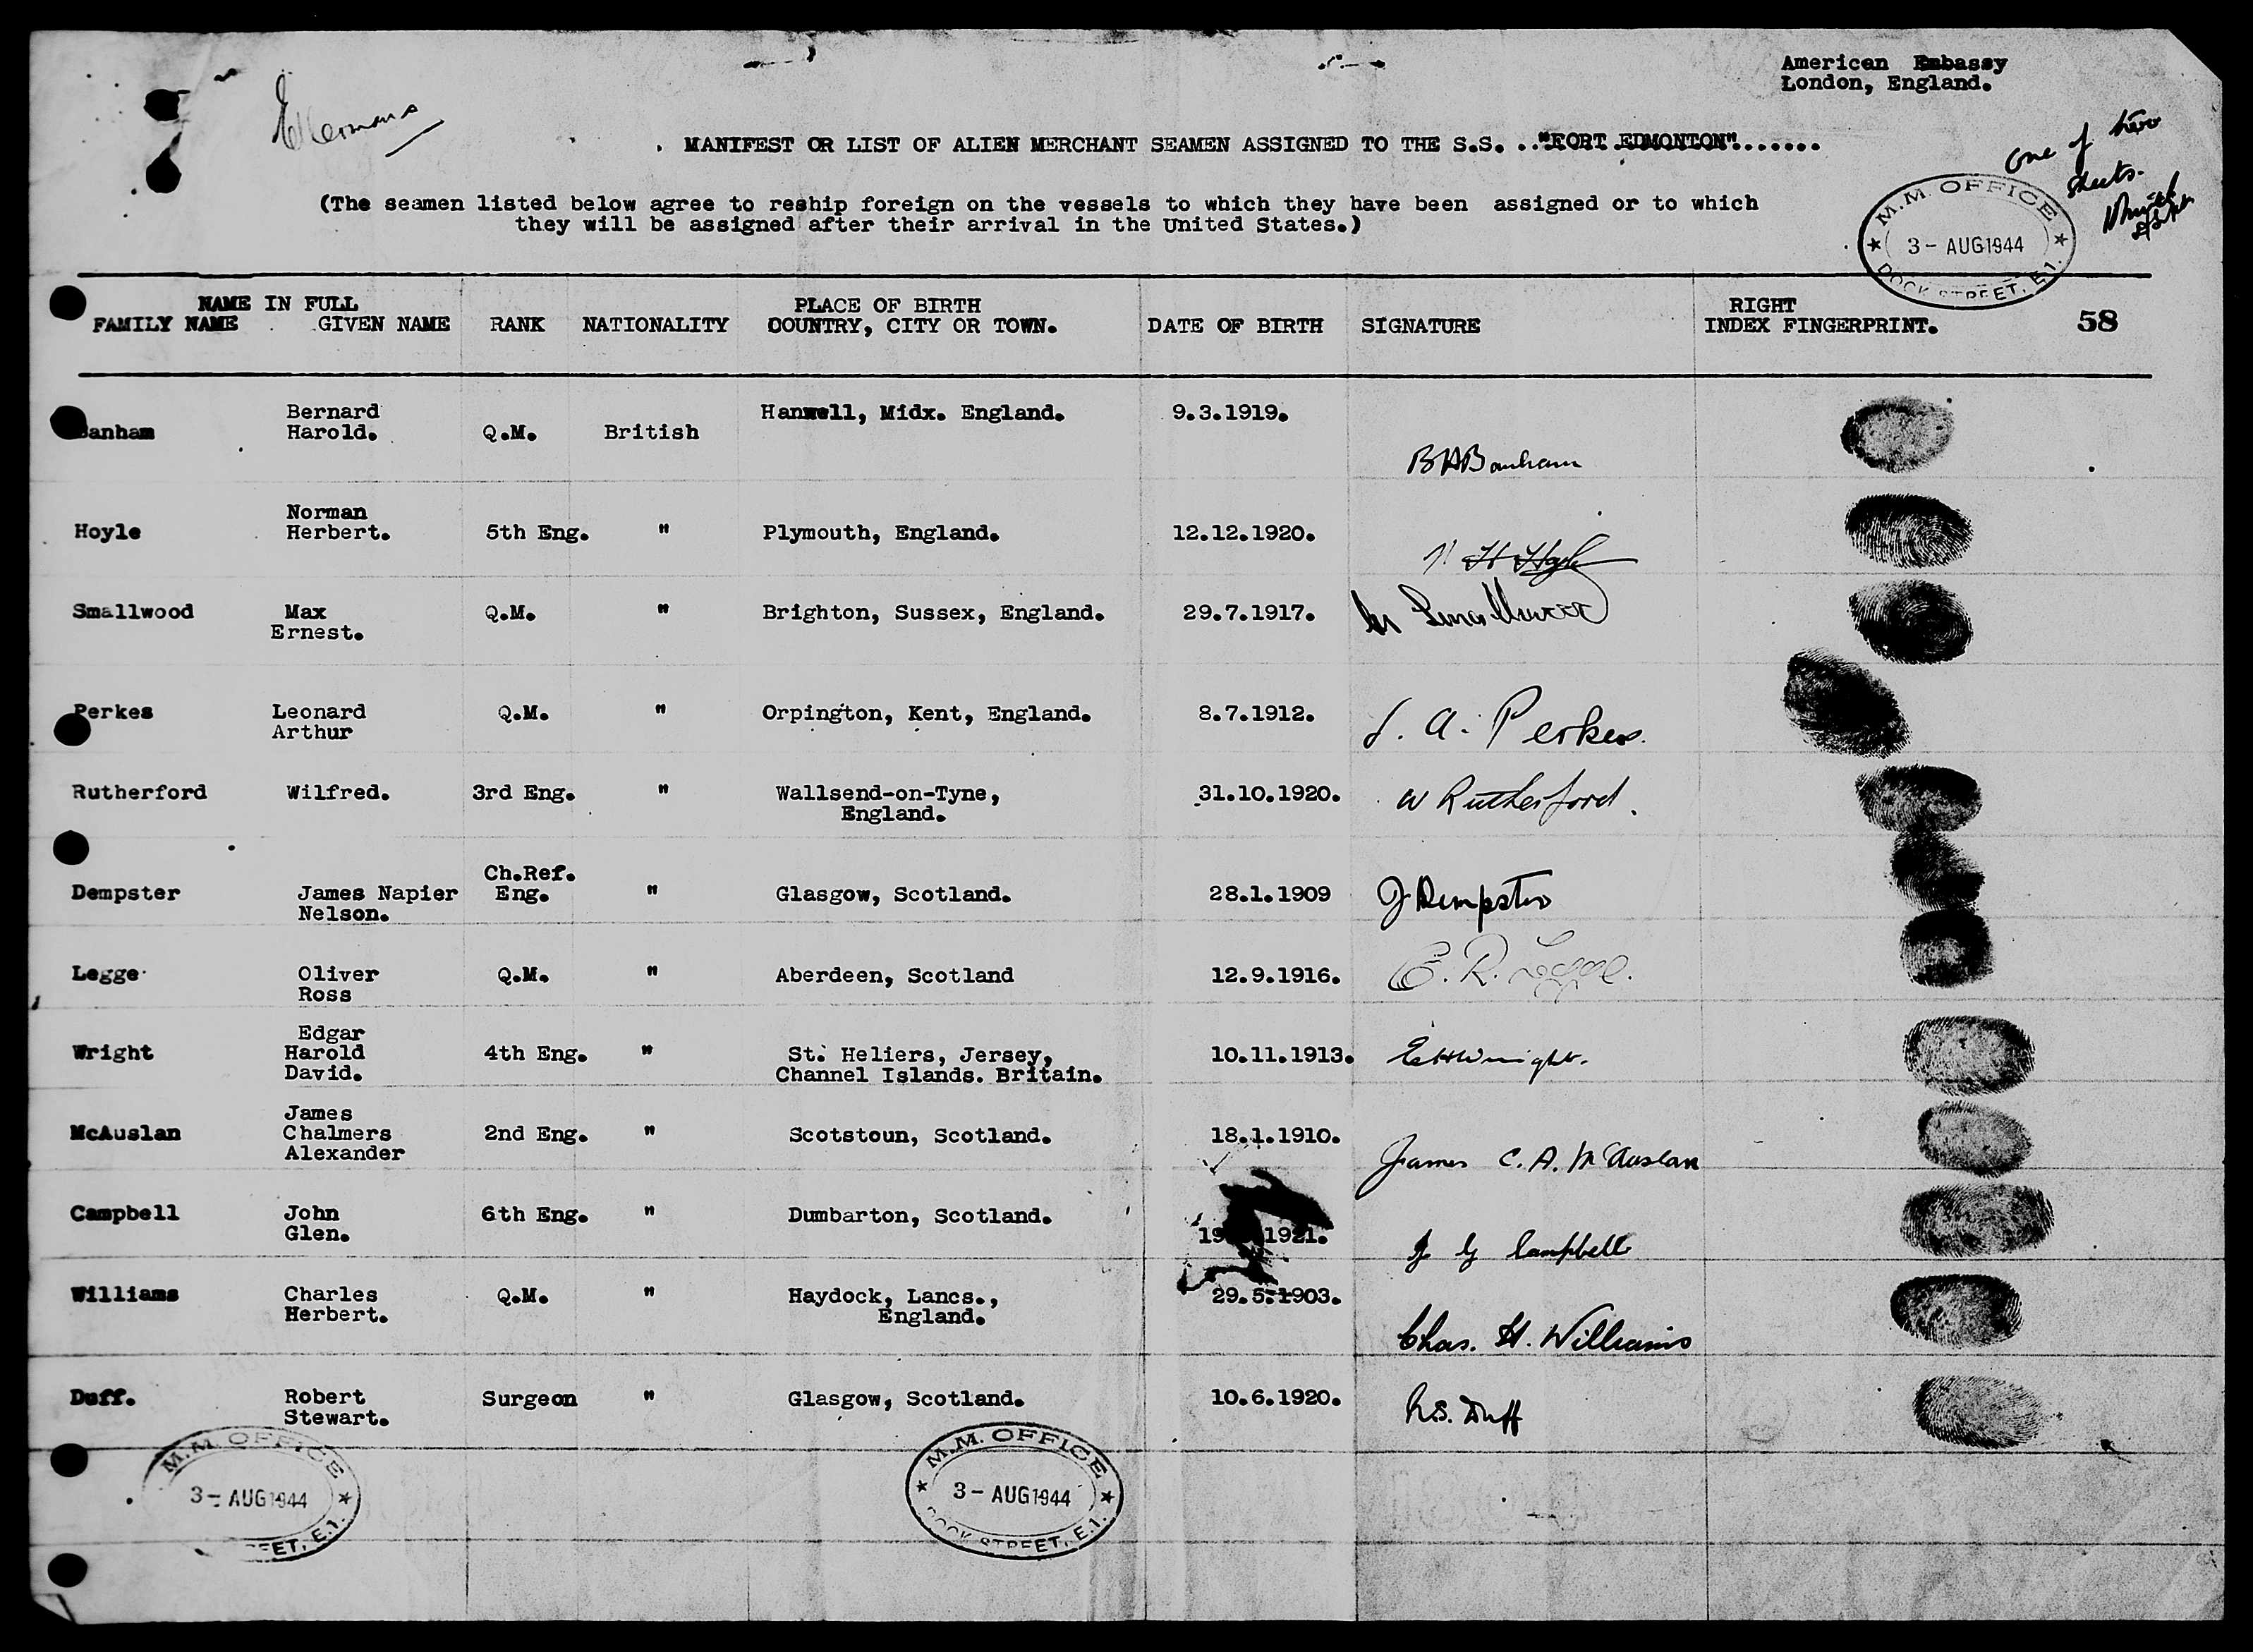 American Embassy
London, England.
Ellermans
MANIFEST OR LIST OF ALIEN MERCHANT SEAMEN ASSIGNED TO THE S.S. .."FORT EDMONTON".......
one of two
sheets.
(The seamen listed below agree to reship foreign on the vessels to which they have been assigned or to which
they will be assigned after their arrival in the United States.)
M.M. OFFICE
3 - AUG 1944
DOCK STREET, E.1.
NAME IN FULL
FAMILY NAME GIVEN NAME RANK NATIONALITY PLACE OF BIRTH COUNTRY, CITY OR TOWN. DATE OF BIRTH SIGNATURE RIGHT INDEX FINGERPRINT. 58
Banham Bernard Harold. Q.M. British Hanwell, Midx. England. 9.3.1919. BHBanham
Hoyle Norman Herbert. 5th Eng. " Plymouth, England. 12.12.1920. N H Hoyle
Smallwood Max Ernest. Q.M. " Brighton, Sussex, England. 29.7.1917. M Smallwood
Perkes Leonard Arthur Q.M. " Orpington, Kent, England. 8.7.1912. L. A. Perkes.
Rutherford Wilfred. 3rd Eng. " Wallsend-on-Tyne, England. 31.10.1920. W Rutherford.
Dempster James Napier Nelson. Ch.Ref. Eng. " Glasgow, Scotland. 28.1.1909 J Dempster
Legge Oliver Ross Q.M. " Aberdeen, Scotland 12.9.1916. O. R. Legge.
Wright Edgar Harold David. 4th Eng. " St. Heliers, Jersey, Channel Islands. Britain. 10.11.1913. EHWright.
McAuslan James Chalmers Alexander 2nd Eng. " Scotstoun, Scotland. 18.1.1910. James C. A. McAuslan
Campbell John Glen. 6th Eng. " Dumbarton, Scotland. 1921. J G Campbell
Williams Charles Herbert. Q.M. " Haydock, Lancs., England. 29.5.1903. Chas. H. Williams
Duff. Robert Stewart. Surgeon " Glasgow, Scotland. 10.6.1920. R.S. Duff
M.M. OFFICE
3 - AUG 1944
E.1.
M.M. OFFICE
3 - AUG 1944
DOCK STREET, E.1.